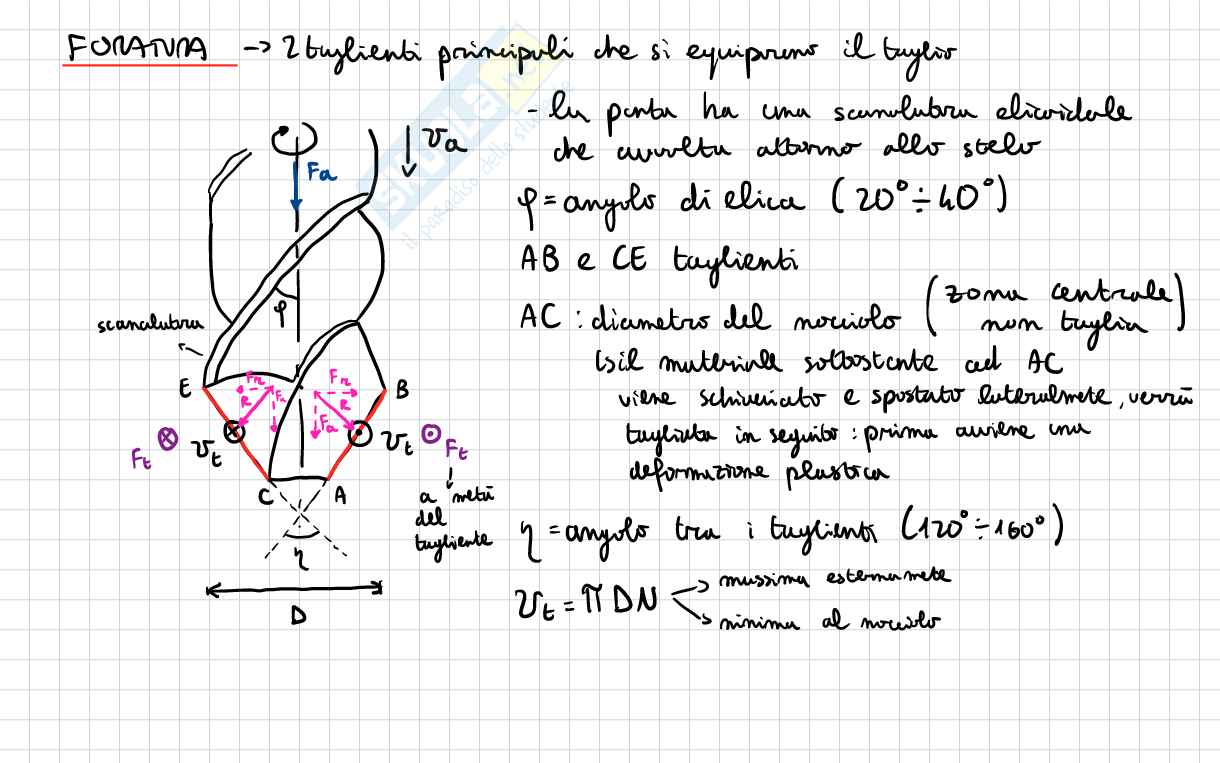 FORATURA → 2 taglienti principali che si equiprano il taglio
- la punta ha una scanalatura elicoidale
che avvolta attorno allo stelo
φ = angolo di elica (20° ÷ 40°)
AB e CE taglienti
AC : diametro del nocciolo (zona centrale
non taglia)
↳ il materiale sottostante ad AC
viene schiacciato e spostato lateralmete, verrà
tagliata in seguito : prima avviene una
deformazione plastica
η = angolo tra i taglienti (120° ÷ 160°)
v_t = π D N → massima esternamete
→ minima al nocciolo
v_a
F_a
φ
scanalatura
E
B
F_n
R
F_a
F_n
R
F_a
v_t
F_t
v_t
F_t
C
A
a metà
del
tagliente
η
D
SKUOLA.net
il paradiso dello studente